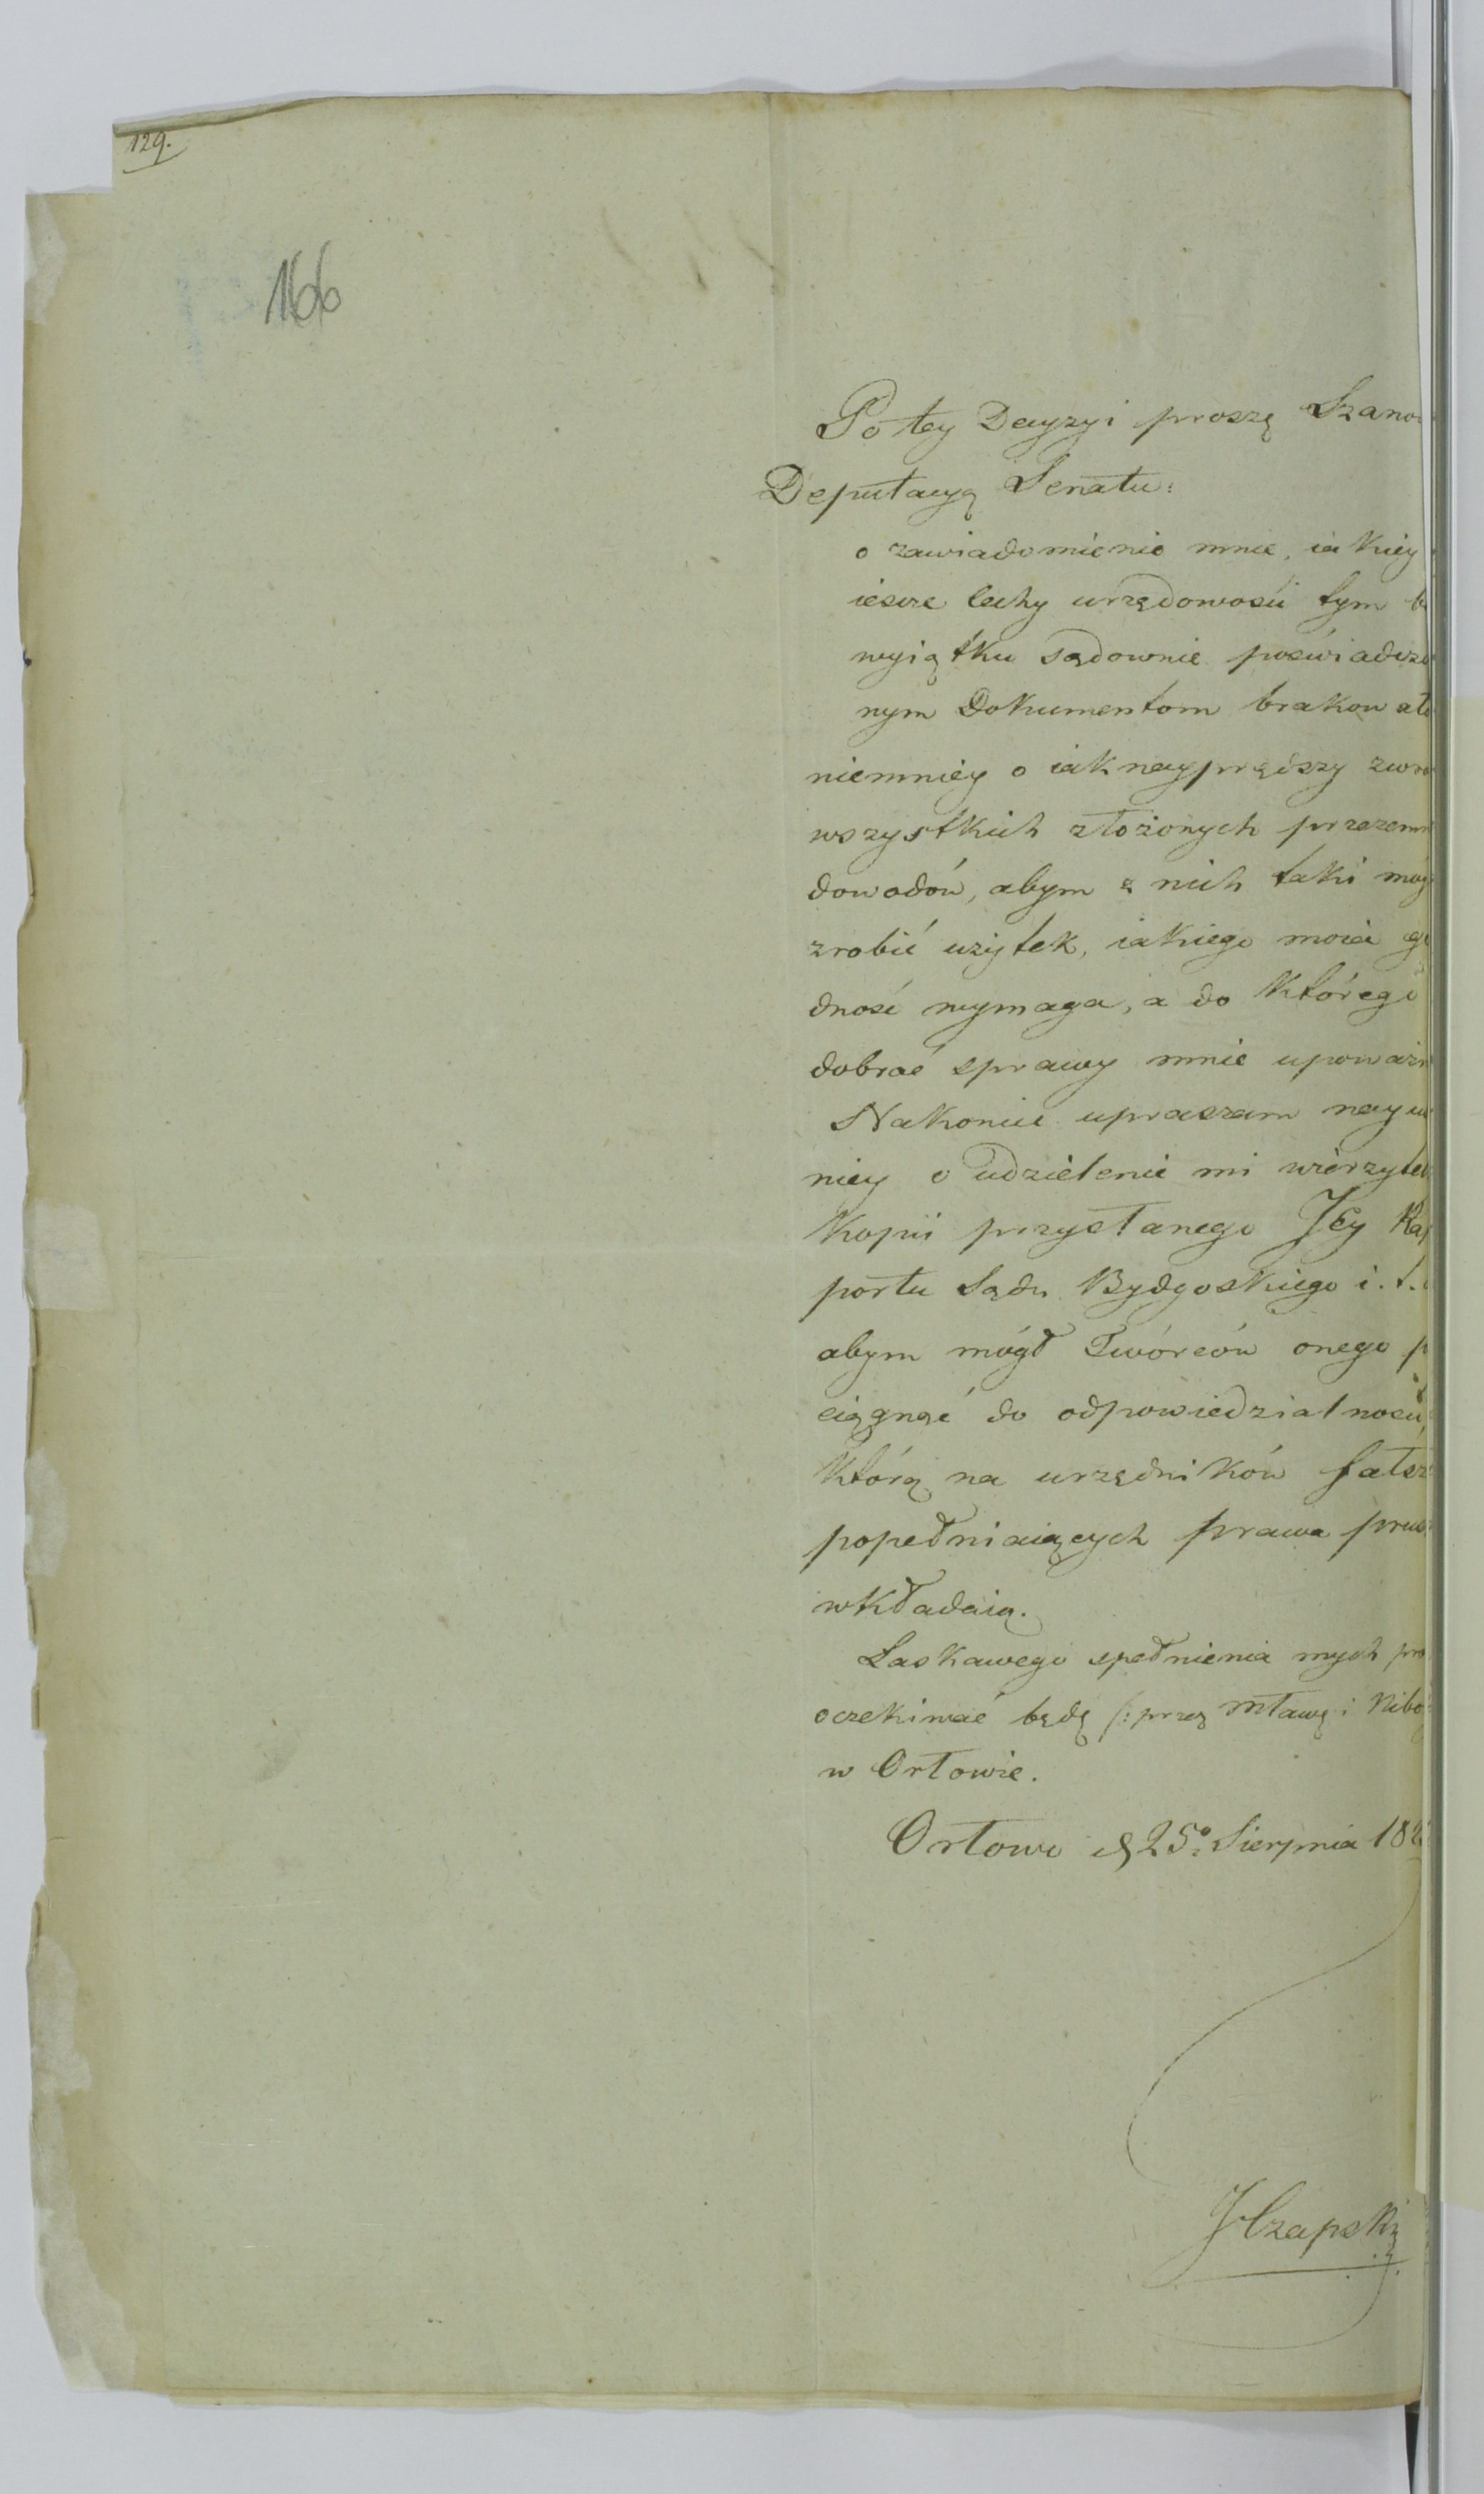 129.
166
Po tey Decyzyi proszę Szano
Deputacyą Senatu:
o zawiadomienie mnie, iakiey
iescze cechy urzędowości tym b
wyiątku sądownie poświadcz
nym Dokumentom brakowało
niemniey o iaknayprędszy zwro
wszystkich złożonych przezemn
dowodów, abym z nich taki móg
zrobić użytek, iakiego moia go
dność wymaga, a do którego
dobroć sprawy mnie upoważn
Nakoniec upraszam nay
niey o udzielenie mi wierzytel
kopii przysłanego Jey Rap
portu Sądu Bydgoskiego i. t.
abym mógł Twórców onego p
ciągnąć do odpowiedzialności,
którą na urzędników fałsz
popełniaiących prawa prus
wkładaią.
Łaskawego spełnienia mych pro
oczekiwać będę /: przez Mławę i Nibo
w Orłowie.
Orłowo d 25º Sierpnia 18
J Czapski